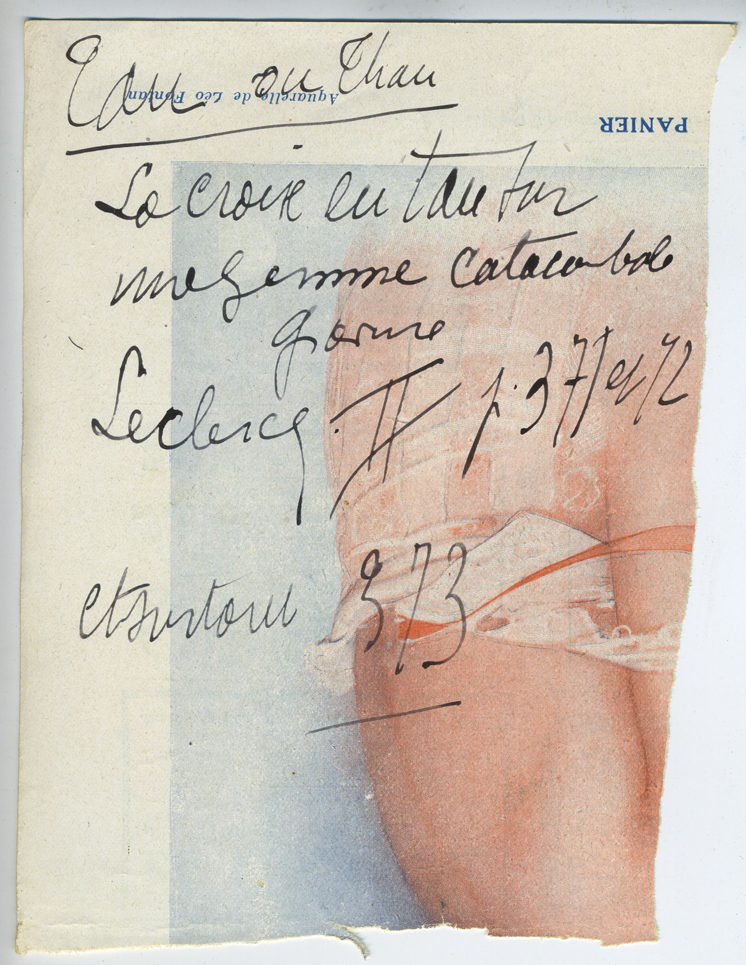 Tau ou Thau
Aquarelle de Léo Fontan
PANIER
La croix en tau sur
une gemme catacombale
Leclercq II p. 371 et 72
et surtout 373